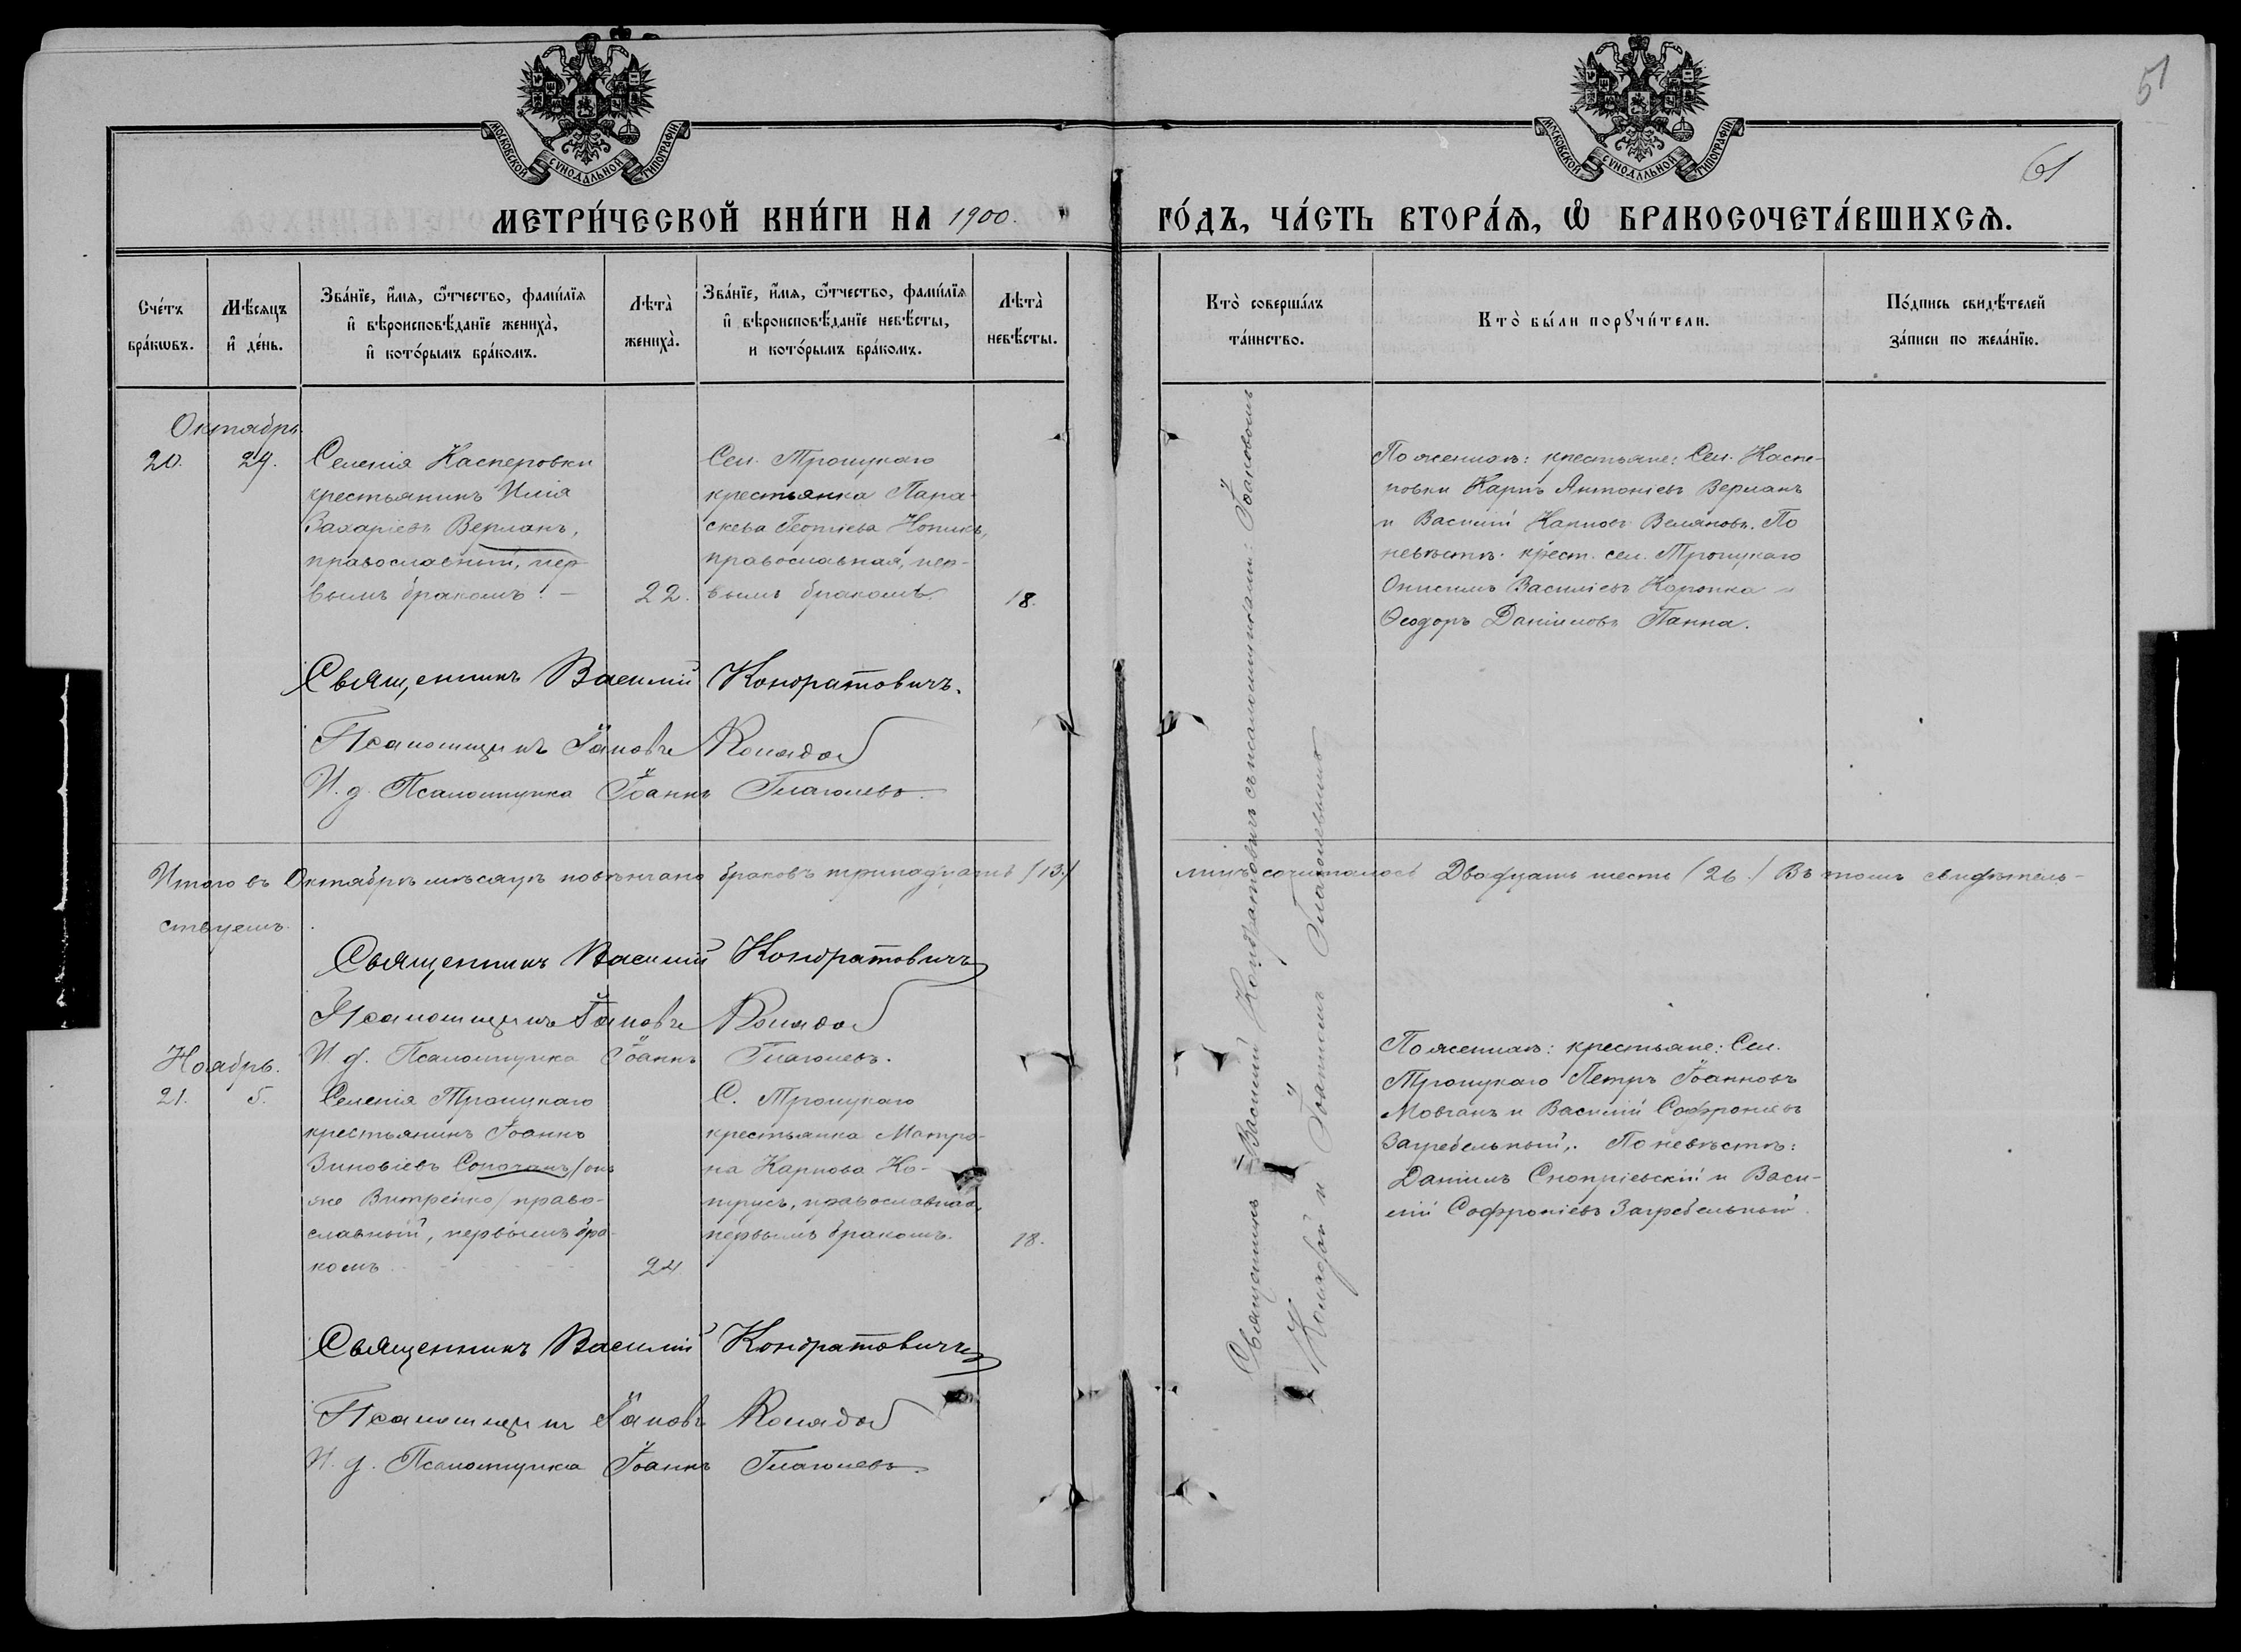 51
61
МОСКОВСКОЙ СѴНОДАЛЬНОЙ ТИПОГРАФІИ
МОСКОВСКОЙ СѴНОДАЛЬНОЙ ТИПОГРАФІИ
МЕТРИ́ЧЕСКОЙ КНИ́ГИ НА 1900.
ГО́ДЪ, ЧА́СТЬ ВТОРА́Ѧ, Ѽ БРАКОСОЧЕТА́ВШИХСѦ.
Сче́тъ
бра́кѡвъ.
Мѣ́сяцъ
и҆ де́нь.
Зва́нїе, и҆́мя, ѻ҆́тчество, фами́лїя
и҆ вѣроисповѣ́данїе жениха̀,
и҆ кото́рымъ бра́комъ.
Лѣта̀
жениха̀.
Зва́нїе, и҆́мя, ѻ҆́тчество, фами́лїя
и҆ вѣроисповѣ́данїе невѣ́сты,
и кото́рымъ бра́комъ.
Лѣта̀
невѣ́сты.
Кто̀ соверша́лъ
та́инство.
Кто̀ бы́ли порꙋчи́тели.
По́дпись свидѣ́телей
за́писи по жела́нїю.
Октябрь.
20.
29.
Селенія Касперовки
крестьянинъ Илія
Захаріевъ Верланъ,
православный, пер-
вымъ бракомъ. —
22.
Сел. Троицкаго
крестьянка Пара-
скева Георгіева
православная, пер-
вымъ бракомъ.
18.
По женихѣ: крестьяне: Сел. Каспе-
ровки Карпъ Антоніевъ Верланъ
и Василій Карповъ По
невѣстѣ: крест. сел. Троицкаго
Онисимъ Василіевъ и
Ѳеодоръ Даніиловъ Панна.
Священникъ Василій Кондратовичъ.
Псаломщикъ Іаковъ Колядой
И. д. Псаломщика Іоаннъ Глаголевъ.
Итого въ Октябрѣ мѣсяцѣ повѣнчано браковъ тринадцать (13.)
лицъ сочиталось Двадцать шесть (26.) Въ томъ свидѣтель-
ствуемъ.
Священникъ Василій Кондратовичъ
Псаломщикъ Іаковъ Колядой
И. д. Псаломщика Іоаннъ Глаголевъ.
Ноябрь.
21.
5.
Селенія Троицкаго
крестьянинъ Іоаннъ
Зиновіевъ Сорочанъ (онъ
же Витренко) право-
славный, первымъ бра-
комъ
24
С. Троицкаго
крестьянка Матро-
на Карпова Ко-
православная,
первымъ бракомъ.
18.
По женихѣ: крестьяне: Сел.
Троицкаго Петръ Іоанновъ
Мовчанъ и Василій Софроніевъ
Загребельный. По невѣстѣ:
Даніилъ и Васи-
лій Софроніевъ Загребельный.
Священникъ Василій Кондратовичъ съ псаломщиками: Іаковомъ
Колядой и Іоанномъ Глаголевымъ
Священникъ Василій Кондратовичъ
Псаломщикъ Іаковъ Колядой
И. д. Псаломщика Іоаннъ Глаголевъ.